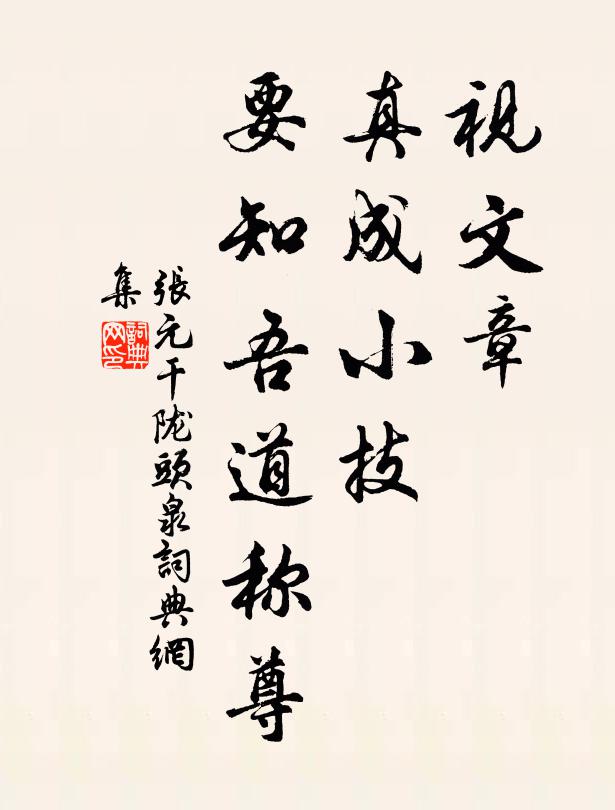 視文章
真成小技
要知吾道称尊
張元干陇頭泉詞典網
集
詞典
网印